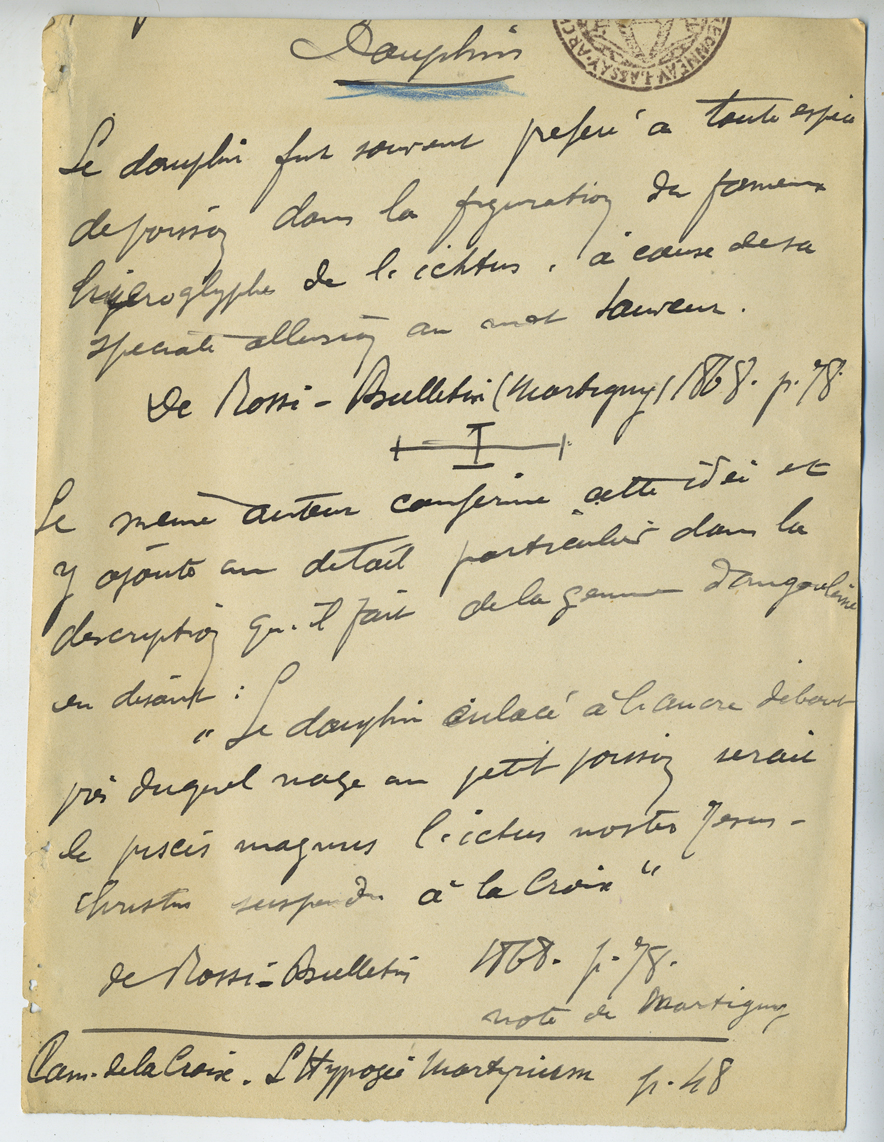 Dauphin
ONNEAU-LASSAY·ARC
Le dauphin fut souvent préféré à toute espèce
de poisson dans la figuration du fameux
hieroglyphe de l'ichtus, à cause de sa
speciale allusion au mot Sauveur.
De Rossi - Bulletin (Martigny) 1868. p. 78.
Le même auteur confirme cette idée et
y ajoute un détail particulier dans la
description qu'il fait de la gemme d'angoulême
en disant :
" Le dauphin enlacé à l'ancre debout
près duquel nage un petit poisson serait
le piscis magnus l'ictus noster Jesus-
Christus suspendu à la Croix "
de Rossi - Bulletin 1868. p. 78.
note de Martigny
Cam. de la Croix. L'Hypogée Martyrium p. 48